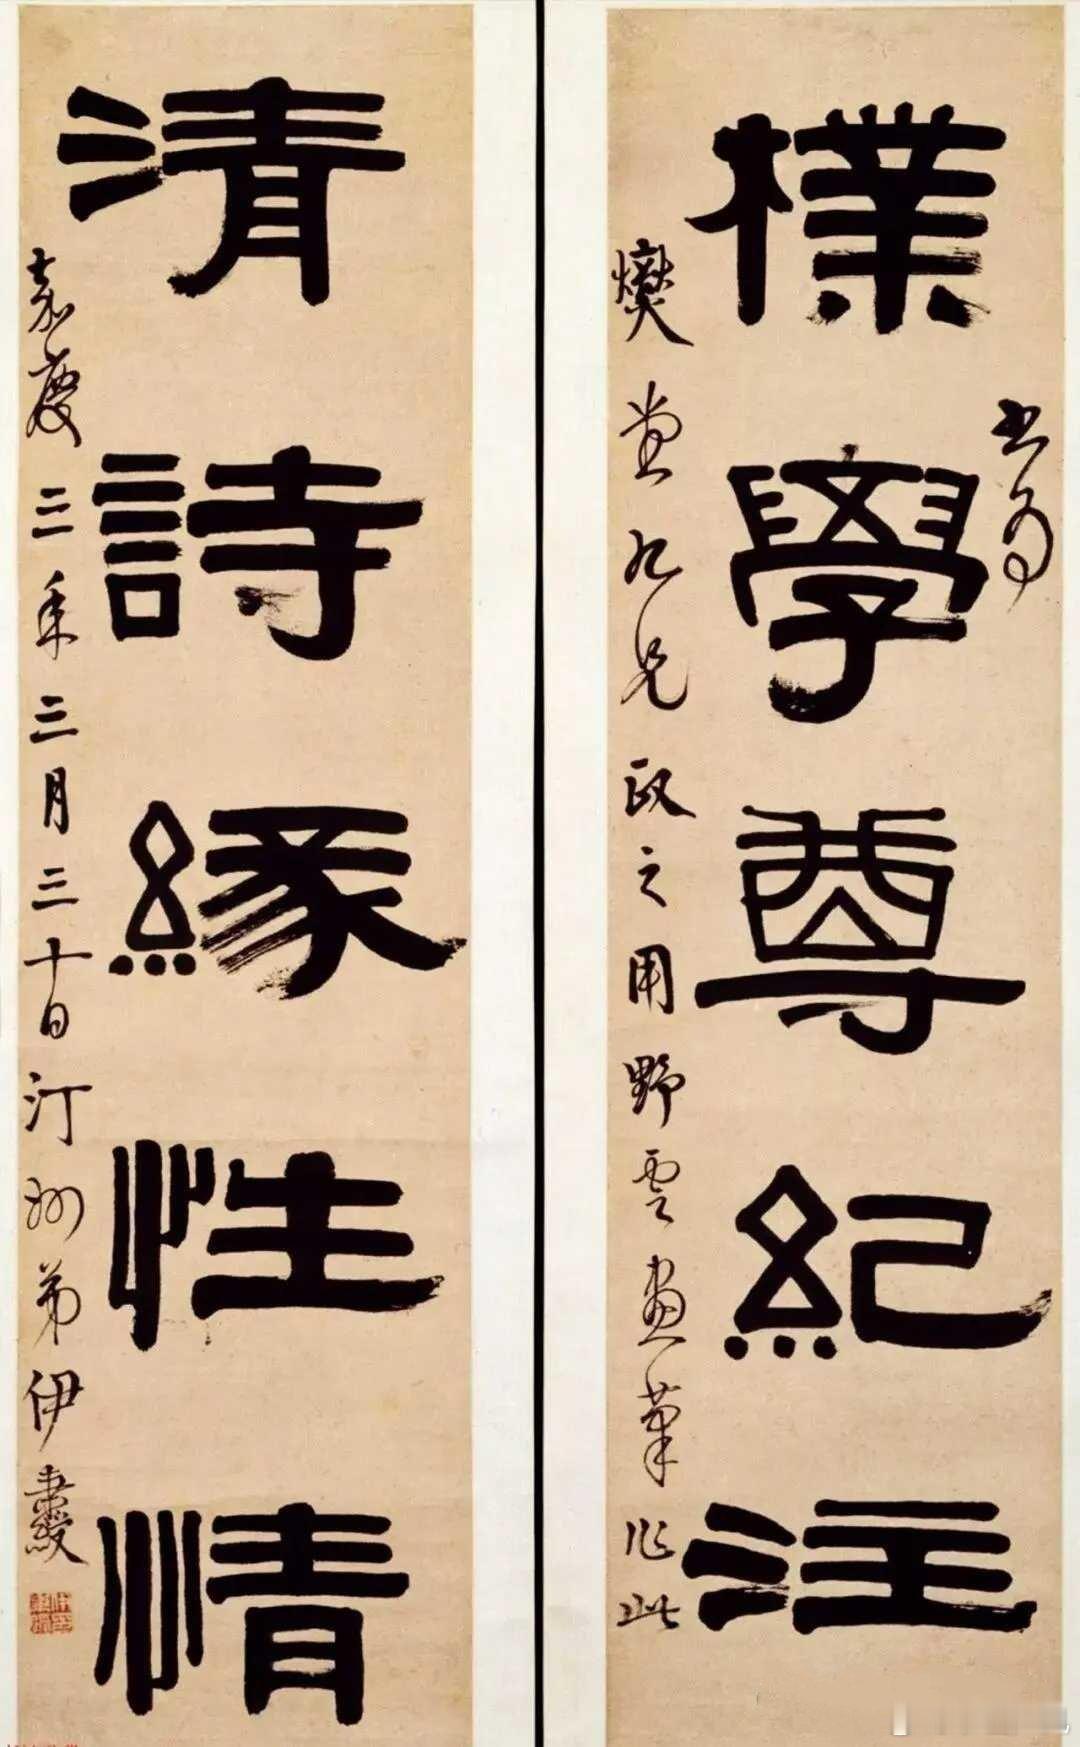 書為
樸學尊紀注
爕堂九兄政之用野雲畫筆作此
清詩緣性情
嘉慶三年三月三十日汀州弟伊秉綬